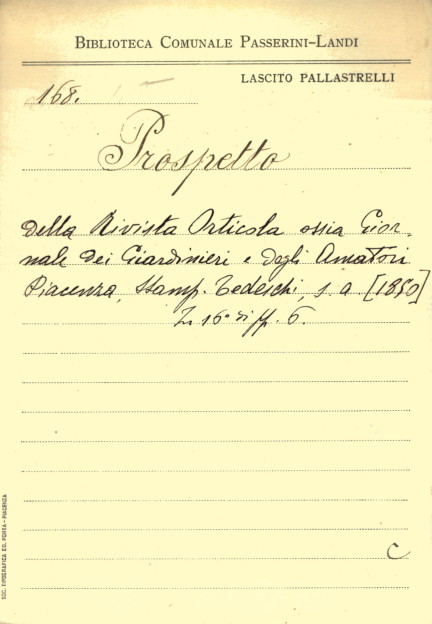 BIBLIOTECA COMUNALE PASSERINI-LANDI
LASCITO PALLASTRELLI
168.
Prospetto
della Rivista Orticola ossia Gior-
nale dei Giardinieri e degli Amatori
Piacenza, Stamp. Tedeschi, s. a. [1850]
In 16° di pp. 6.
C
SOC. TIPOGRAFICA ED. PORTA - PIACENZA